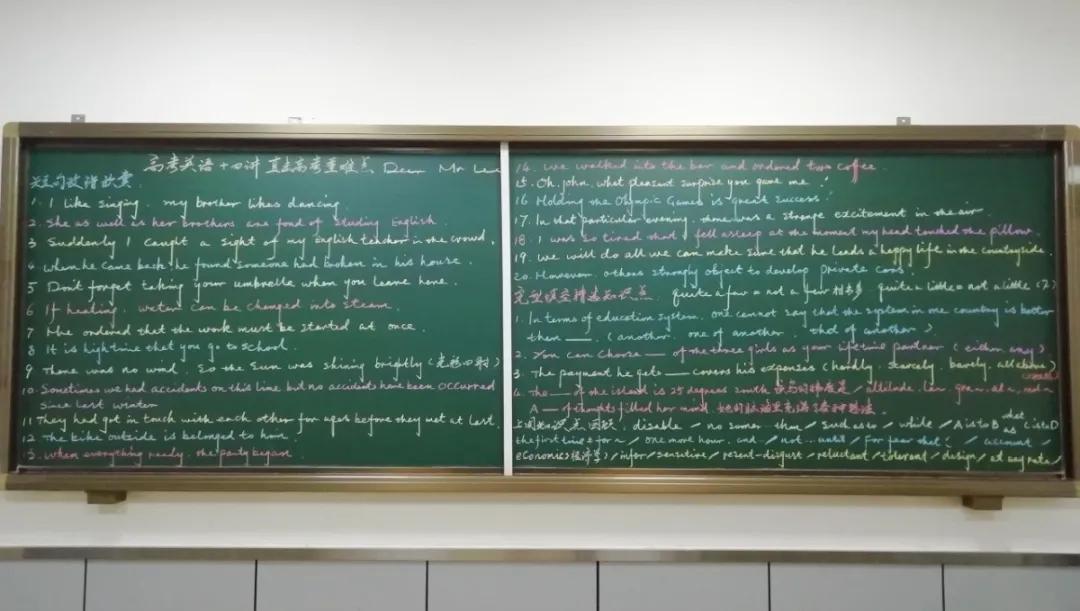 高考英语十四讲 直击高考重难点 Dear Mr Lee
关键句改错欣赏
1. I like singing. my brother likes dancing.
2. She as well as her brothers are fond of studing English.
3 Suddenly I caught a sight of my english teacher in the crowd.
4 when he came back, he found someone had broken in his house.
5 Don't forget taking your umbrella when you leave here.
6 If heating, water can be changed into steam.
7 He ordered that the work must be started at once.
8 It is high time that you go to school.
9 There was no wind. So the Sun was shining brightly (光芒四射)
10. Sometimes we had accidents on this line but no accidents have been occurred
Since last winter
11 They had got in touch with each other for ages before they met at last.
12 The bike outside is belonged to him.
13. When everything ready, the party began
14. we walked into the bar and ordered two coffee
15. Oh. john. what pleasant surprise you gave me!
16 Holding the Olympic Games is great success!
17. In that particular evening, there was a strange excitement in the air.
18. I was so tired that I fell asleep at the moment my head touched the pillow.
19. we will do all we can make sure that he leads a happy life in the countryside.
20. However, others strongly object to develop private cars.
quite a few = not a few 相当多 quite a little = not a little (?)
1. In terms of education system, one cannot say that the system in one country is better
than ___. (another, one of another, that of another)
2. You can choose ___ of the three girls as your lifetime partner (either, any)
3. The payment he gets ___ covers his expenses (hardly, scarcely, barely, all above)
4. The ___ of the island is 25 degrees south
A ___ of thoughts filled her mind 她的脑海里充满了各种想法.
上周知识点回顾. disable / no sooner than / such as to / while / A is to B what as C is to D
the first time / for n / one more hour, and / not... until / for fear that / account /
economics (经济学) / infer / sensitive / resent-disgust / reluctant / tolerant / design / at any rate /